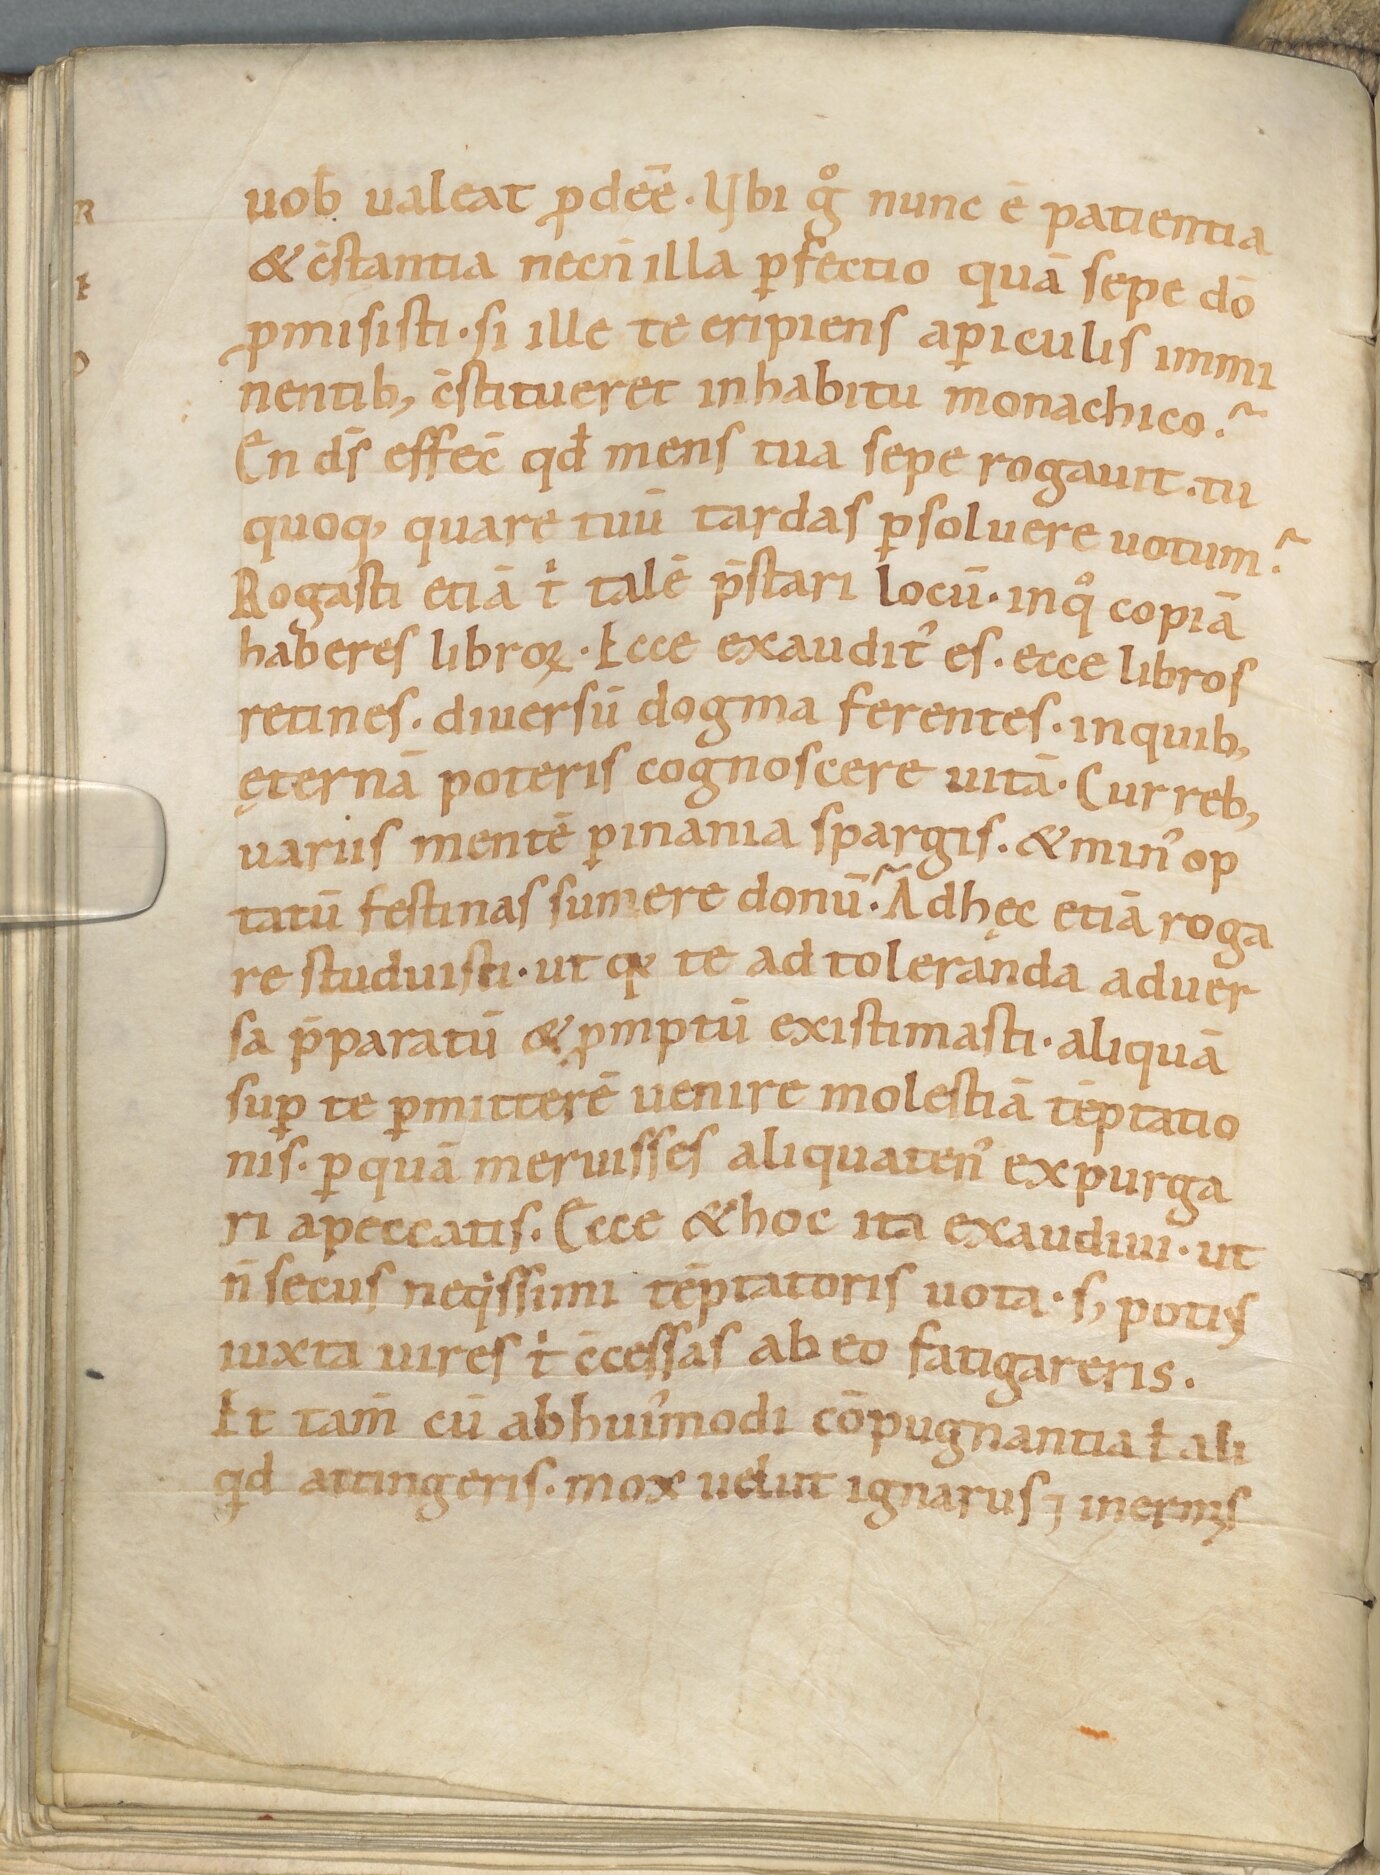 uob̄ ualeat ꝓdeē̄. Ubi gͦ nunc ē patientia
& c̄stantia necn̄ illa ꝑfectio quā sepe dō
ꝓmisisti. si ille te eripiens apiculis immi
nentib, c̄stitueret inhabitu monachico.~
En ds̄ effec̄ qd̄ mens tua sepe rogauit. tu
quoq, quare tuū tardas ꝑsoluere uotum.~
Rogasti etiā tͥ talē p̄stari locū. inqͦ copiā
haberes libroꝝ. Ecce exaudit᾽ es. ecce libros
retines. diuersū dogma ferentes. inquib,
ęternā poteris cognoscere uitā. Cur reb,
uariis mentē ꝑinania spargis. & min᾽ op
tatū festinas sumere donū.~ Adhęc etiā roga
re studuisti. ut qꝛ te ad toleranda aduer
sa p̄paratū & ꝓmptū existimasti. aliquā
suꝑ te ꝑmitterē uenire molestiā tēptatio
nis. ꝑquā meruisses aliquaten᾽ expurga
ri apeccatis. Ecce & hoc ita exaudiui. ut
n̄ secus neqͥssimi tēptatoris uota. s, potiꝰ
iuxta uires tͥ c̄cessas ab eo fatigareris.
Et tam̄ cū abhui᾽modi cōpugnantia ł ali
qd attingeris. mox uelut ignarus ⁊ inermis